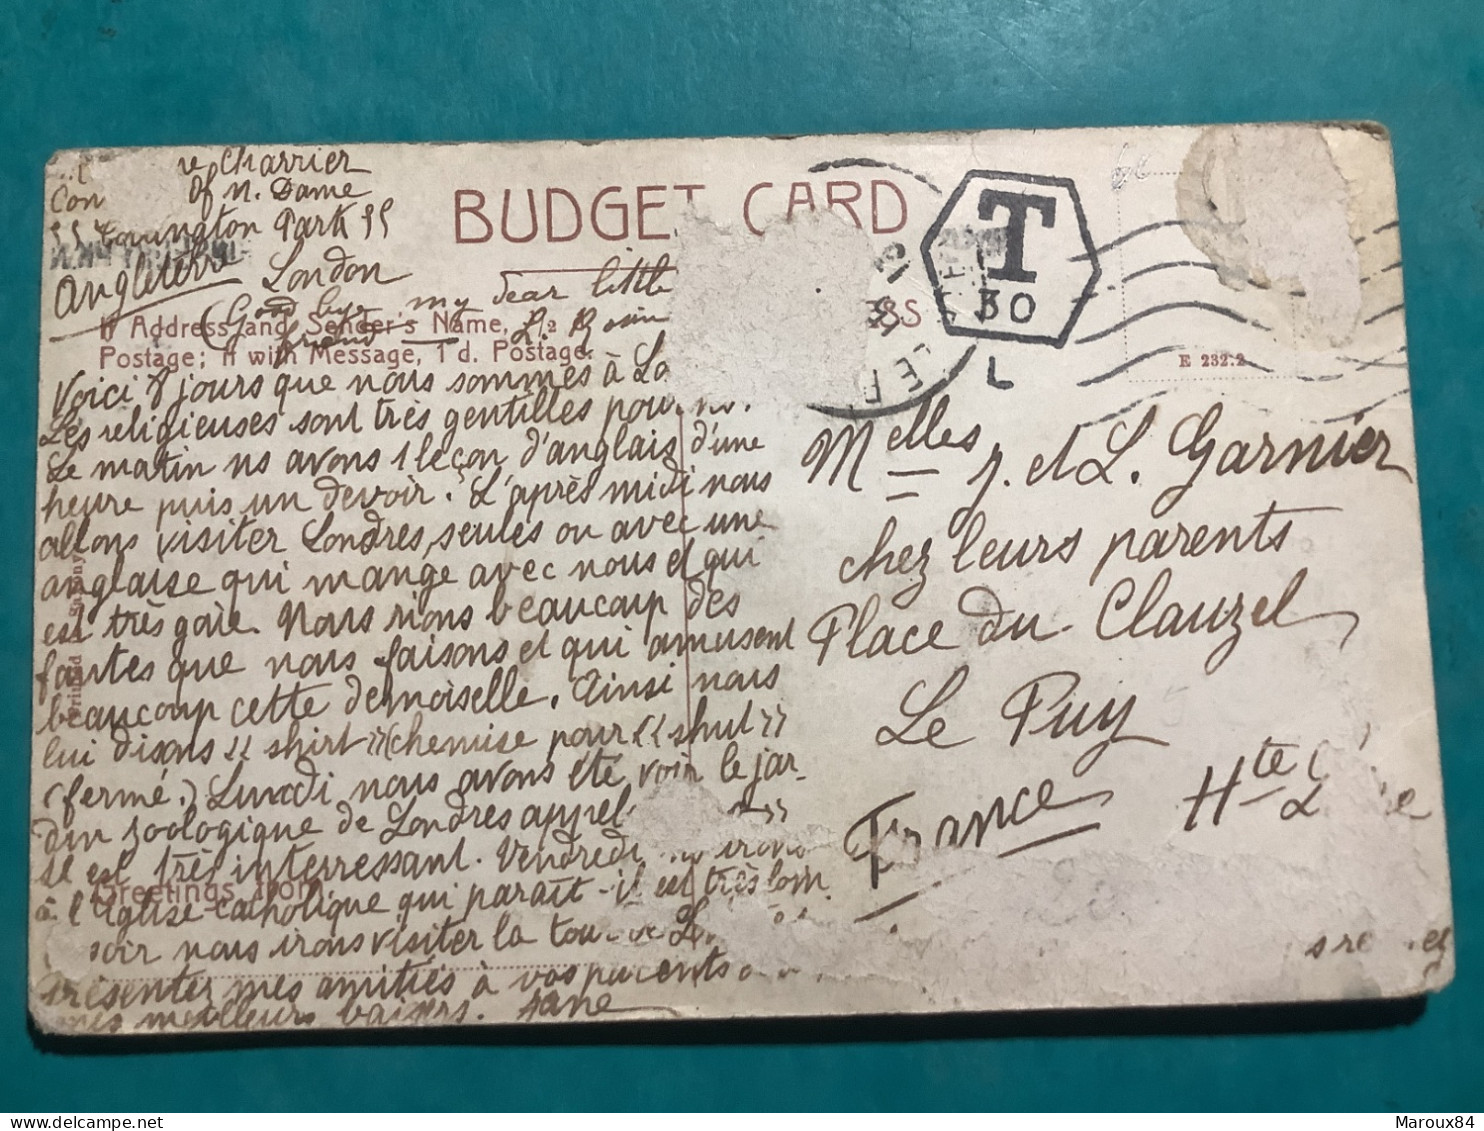 re Charrier
Con of N. Dame
55 Lavington Park 55
Angleterre London
(Good bye my dear little
friend
BUDGET CARD
If Address and Sender's Name,
Postage; If with Message, 1d. Postage.
T
30
L
E 232.2
Voici 8 jours que nous sommes à Lo
Les religieuses sont très gentilles pour ns.
Le matin ns avons 1 leçon d'anglais d'une
heure puis un devoir. L'après midi nous
allons visiter Londres, seules ou avec une
anglaise qui mange avec nous et qui
est très gaie. Nous rions beaucoup des
fautes que nous faisons et qui amusent
beaucoup cette demoiselle. Ainsi nous
lui disons « shirt » (chemise pour « shut »
(fermé.) Lundi nous avons été voir le jar-
din zoologique de Londres appel »
il est très interressant. Vendredi ns irons
à l'Eglise catholique qui paraît-il est très loin
soir nous irons visiter la tour de L
Présentez mes amitiés à vos parents
mes meilleurs baisers. Jane
Greetings from
Melles J. et L. Garnier
chez leurs parents
Place du Clauzel
Le Puy
Hte L re
France
Maroux84